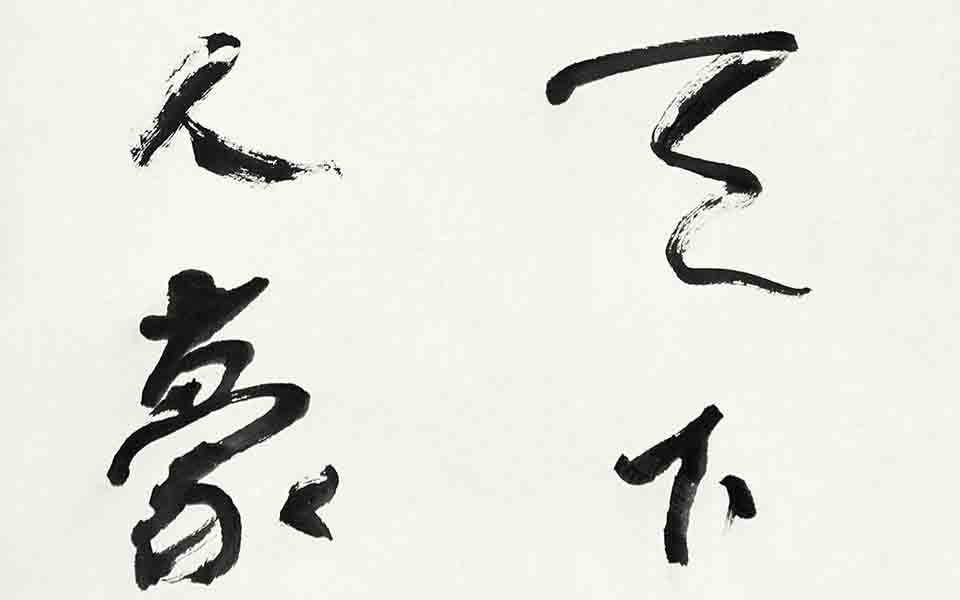 天下
人豪